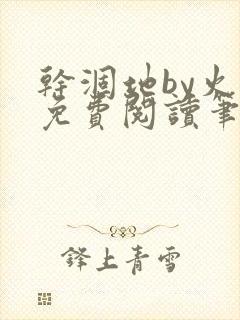 幹涸地by火
免費閱讀筆
鋒上青雪